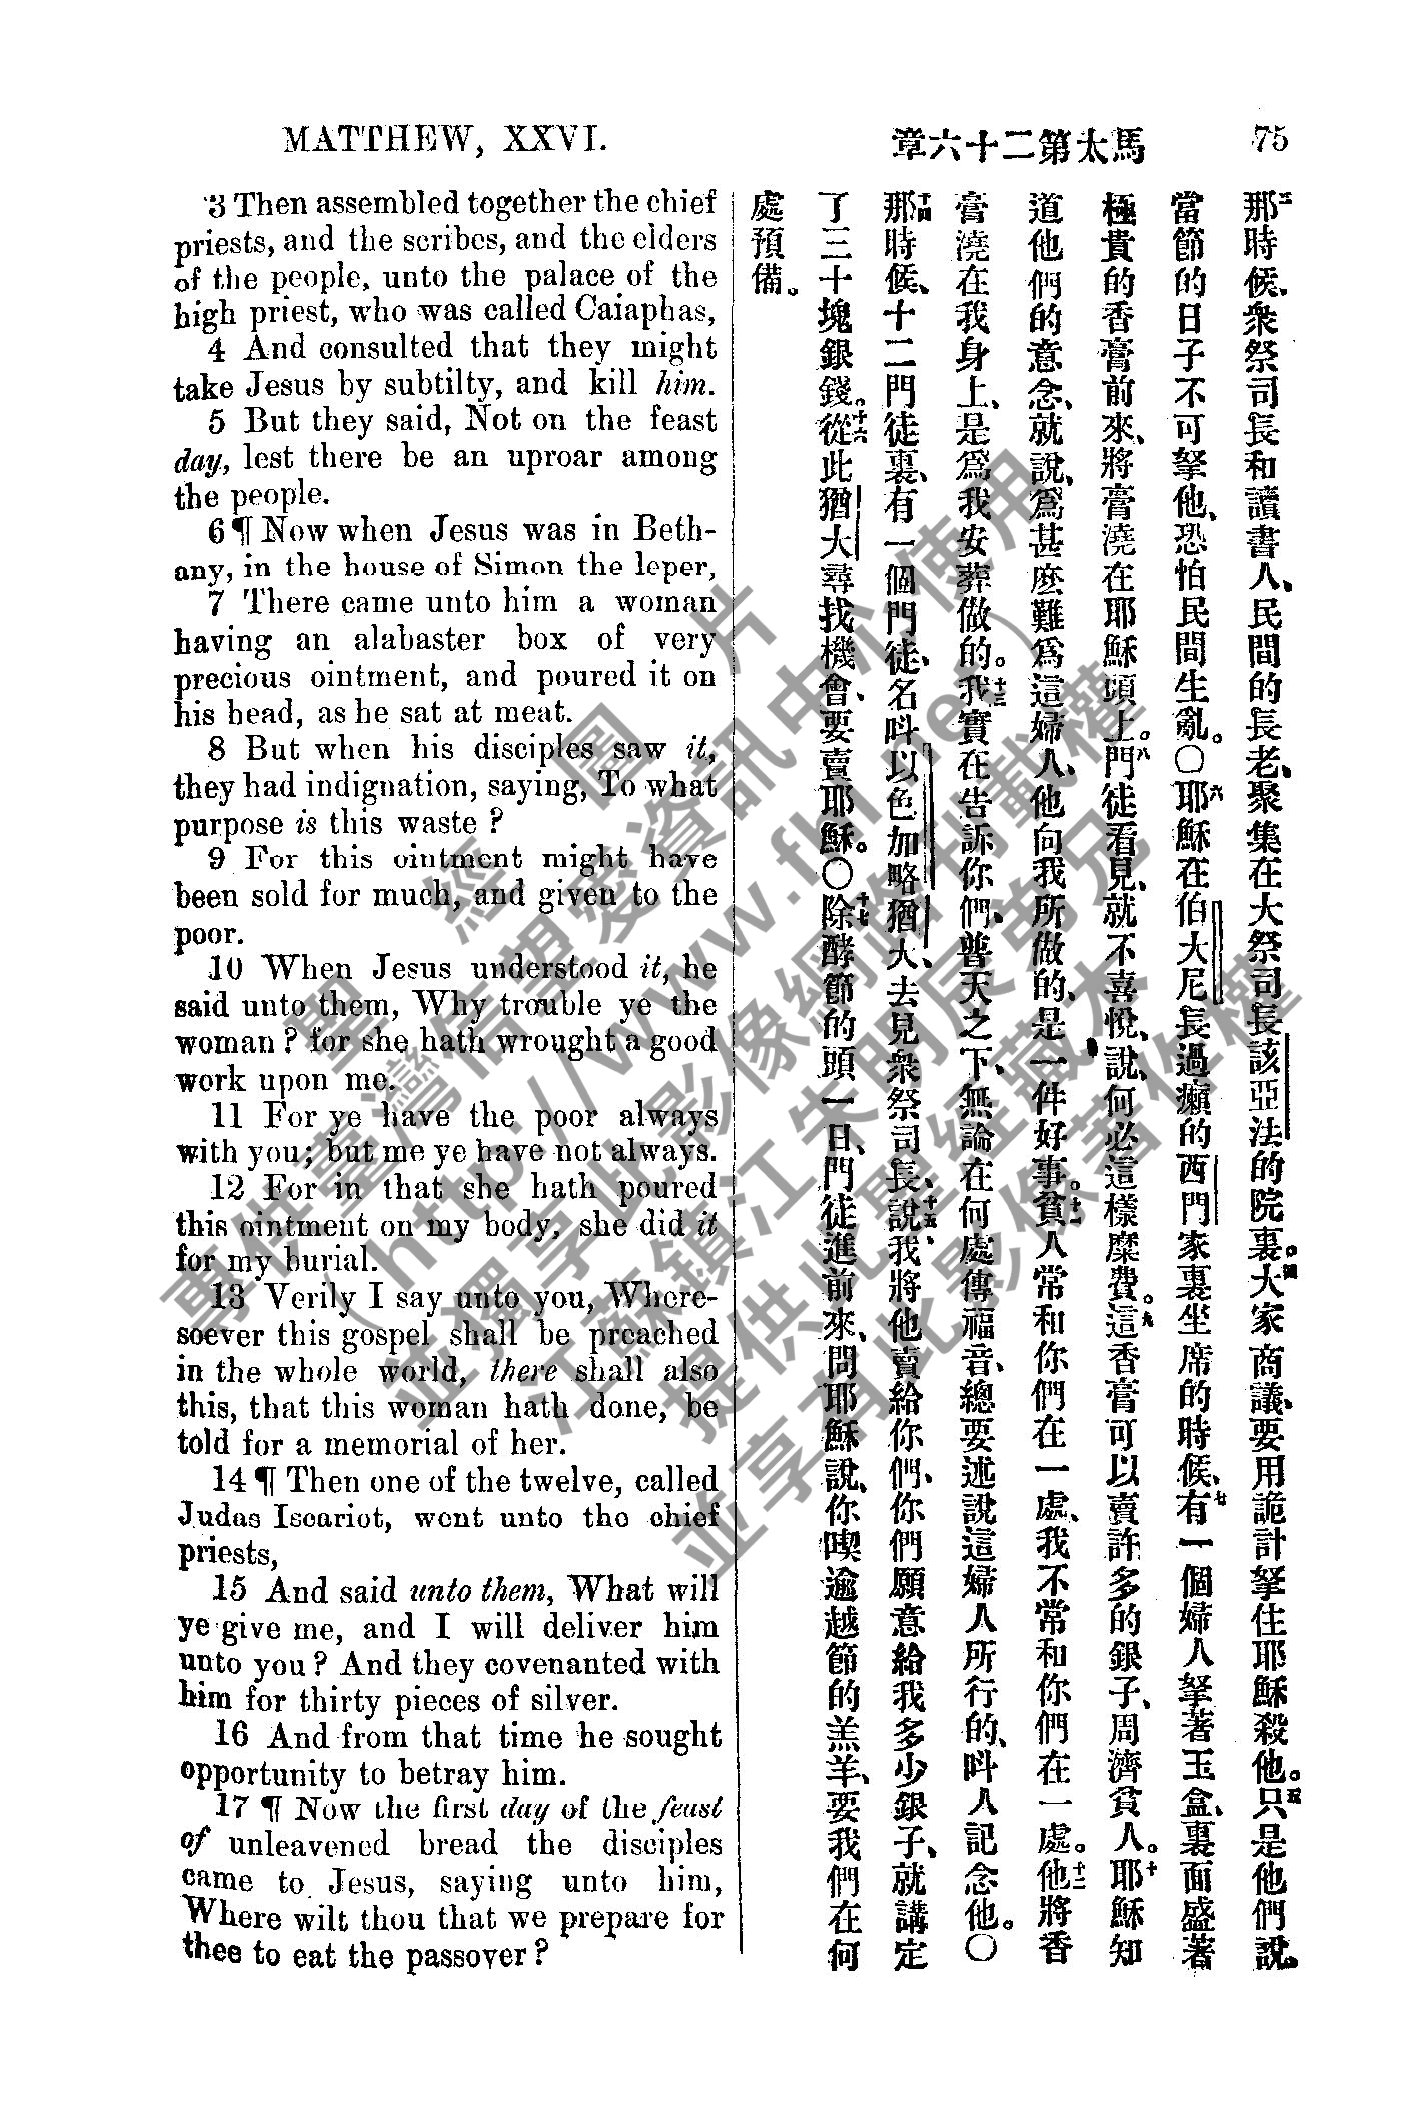 MATTHEW, XXVI.
馬太第二十六章
75
3 Then assembled together the chief
priests, and the scribes, and the elders
of the people, unto the palace of the
high priest, who was called Caiaphas,
4 And consulted that they might
take Jesus by subtilty, and kill him.
5 But they said, Not on the feast
day, lest there be an uproar among
the people.
6 ¶ Now when Jesus was in Beth-
any, in the house of Simon the leper,
7 There came unto him a woman
having an alabaster box of very
precious ointment, and poured it on
his head, as he sat at meat.
8 But when his disciples saw it,
they had indignation, saying, To what
purpose is this waste ?
9 For this ointment might have
been sold for much, and given to the
poor.
10 When Jesus understood it, he
said unto them, Why trouble ye the
woman ? for she hath wrought a good
work upon me.
11 For ye have the poor always
with you; but me ye have not always.
12 For in that she hath poured
this ointment on my body, she did it
for my burial.
13 Verily I say unto you, Where-
soever this gospel shall be preached
in the whole world, there shall also
this, that this woman hath done, be
told for a memorial of her.
14 ¶ Then one of the twelve, called
Judas Iscariot, went unto the chief
priests,
15 And said unto them, What will
ye give me, and I will deliver him
unto you ? And they covenanted with
him for thirty pieces of silver.
16 And from that time he sought
opportunity to betray him.
17 ¶ Now the first day of the feast
of unleavened bread the disciples
came to Jesus, saying unto him,
Where wilt thou that we prepare for
thee to eat the passover ?
三那時候、衆祭司長和讀書人、民間的長老、聚集在大祭司長該亞法的院裏。四大家商議、要用詭計拏住耶穌殺他。五只是他們說、
當節的日子不可拏他、恐怕民間生亂。〇六耶穌在伯大尼長過癩的西門家裏坐席的時候、七有一個婦人拏著玉盒、裏面盛著
極貴的香膏前來、將膏澆在耶穌頭上。八門徒看見、就不喜悅、說、何必這樣糜費。九這香膏可以賣許多的銀子、周濟貧人。十耶穌知
道他們的意念、就說、爲甚麽難爲這婦人、他向我所做的、是一件好事。十一貧人常和你們在一處、我不常和你們在一處。十二他將香
膏澆在我身上、是爲我安葬做的。十三我實在告訴你們、普天之下、無論在何處傳福音、總要述說這婦人所行的、呌人記念他。〇
十四那時候、十二門徒裏、有一個門徒、名呌以色加略猶大、去見衆祭司長、十五說、我將他賣給你們、你們願意給我多少銀子、就講定
了三十塊銀錢。十六從此猶大尋找機會、要賣耶穌。〇十七除酵節的頭一日、門徒進前來、問耶穌說、你喫逾越節的羔羊、要我們在何
處預備。
聖經圖片
專供臺灣信望愛資訊中心使用
（http://www.fhl.net）
並獨享此影像網際刊載權
江蘇鎮江朱明辰弟兄
提供此聖經藏本
並享有此影像著作權